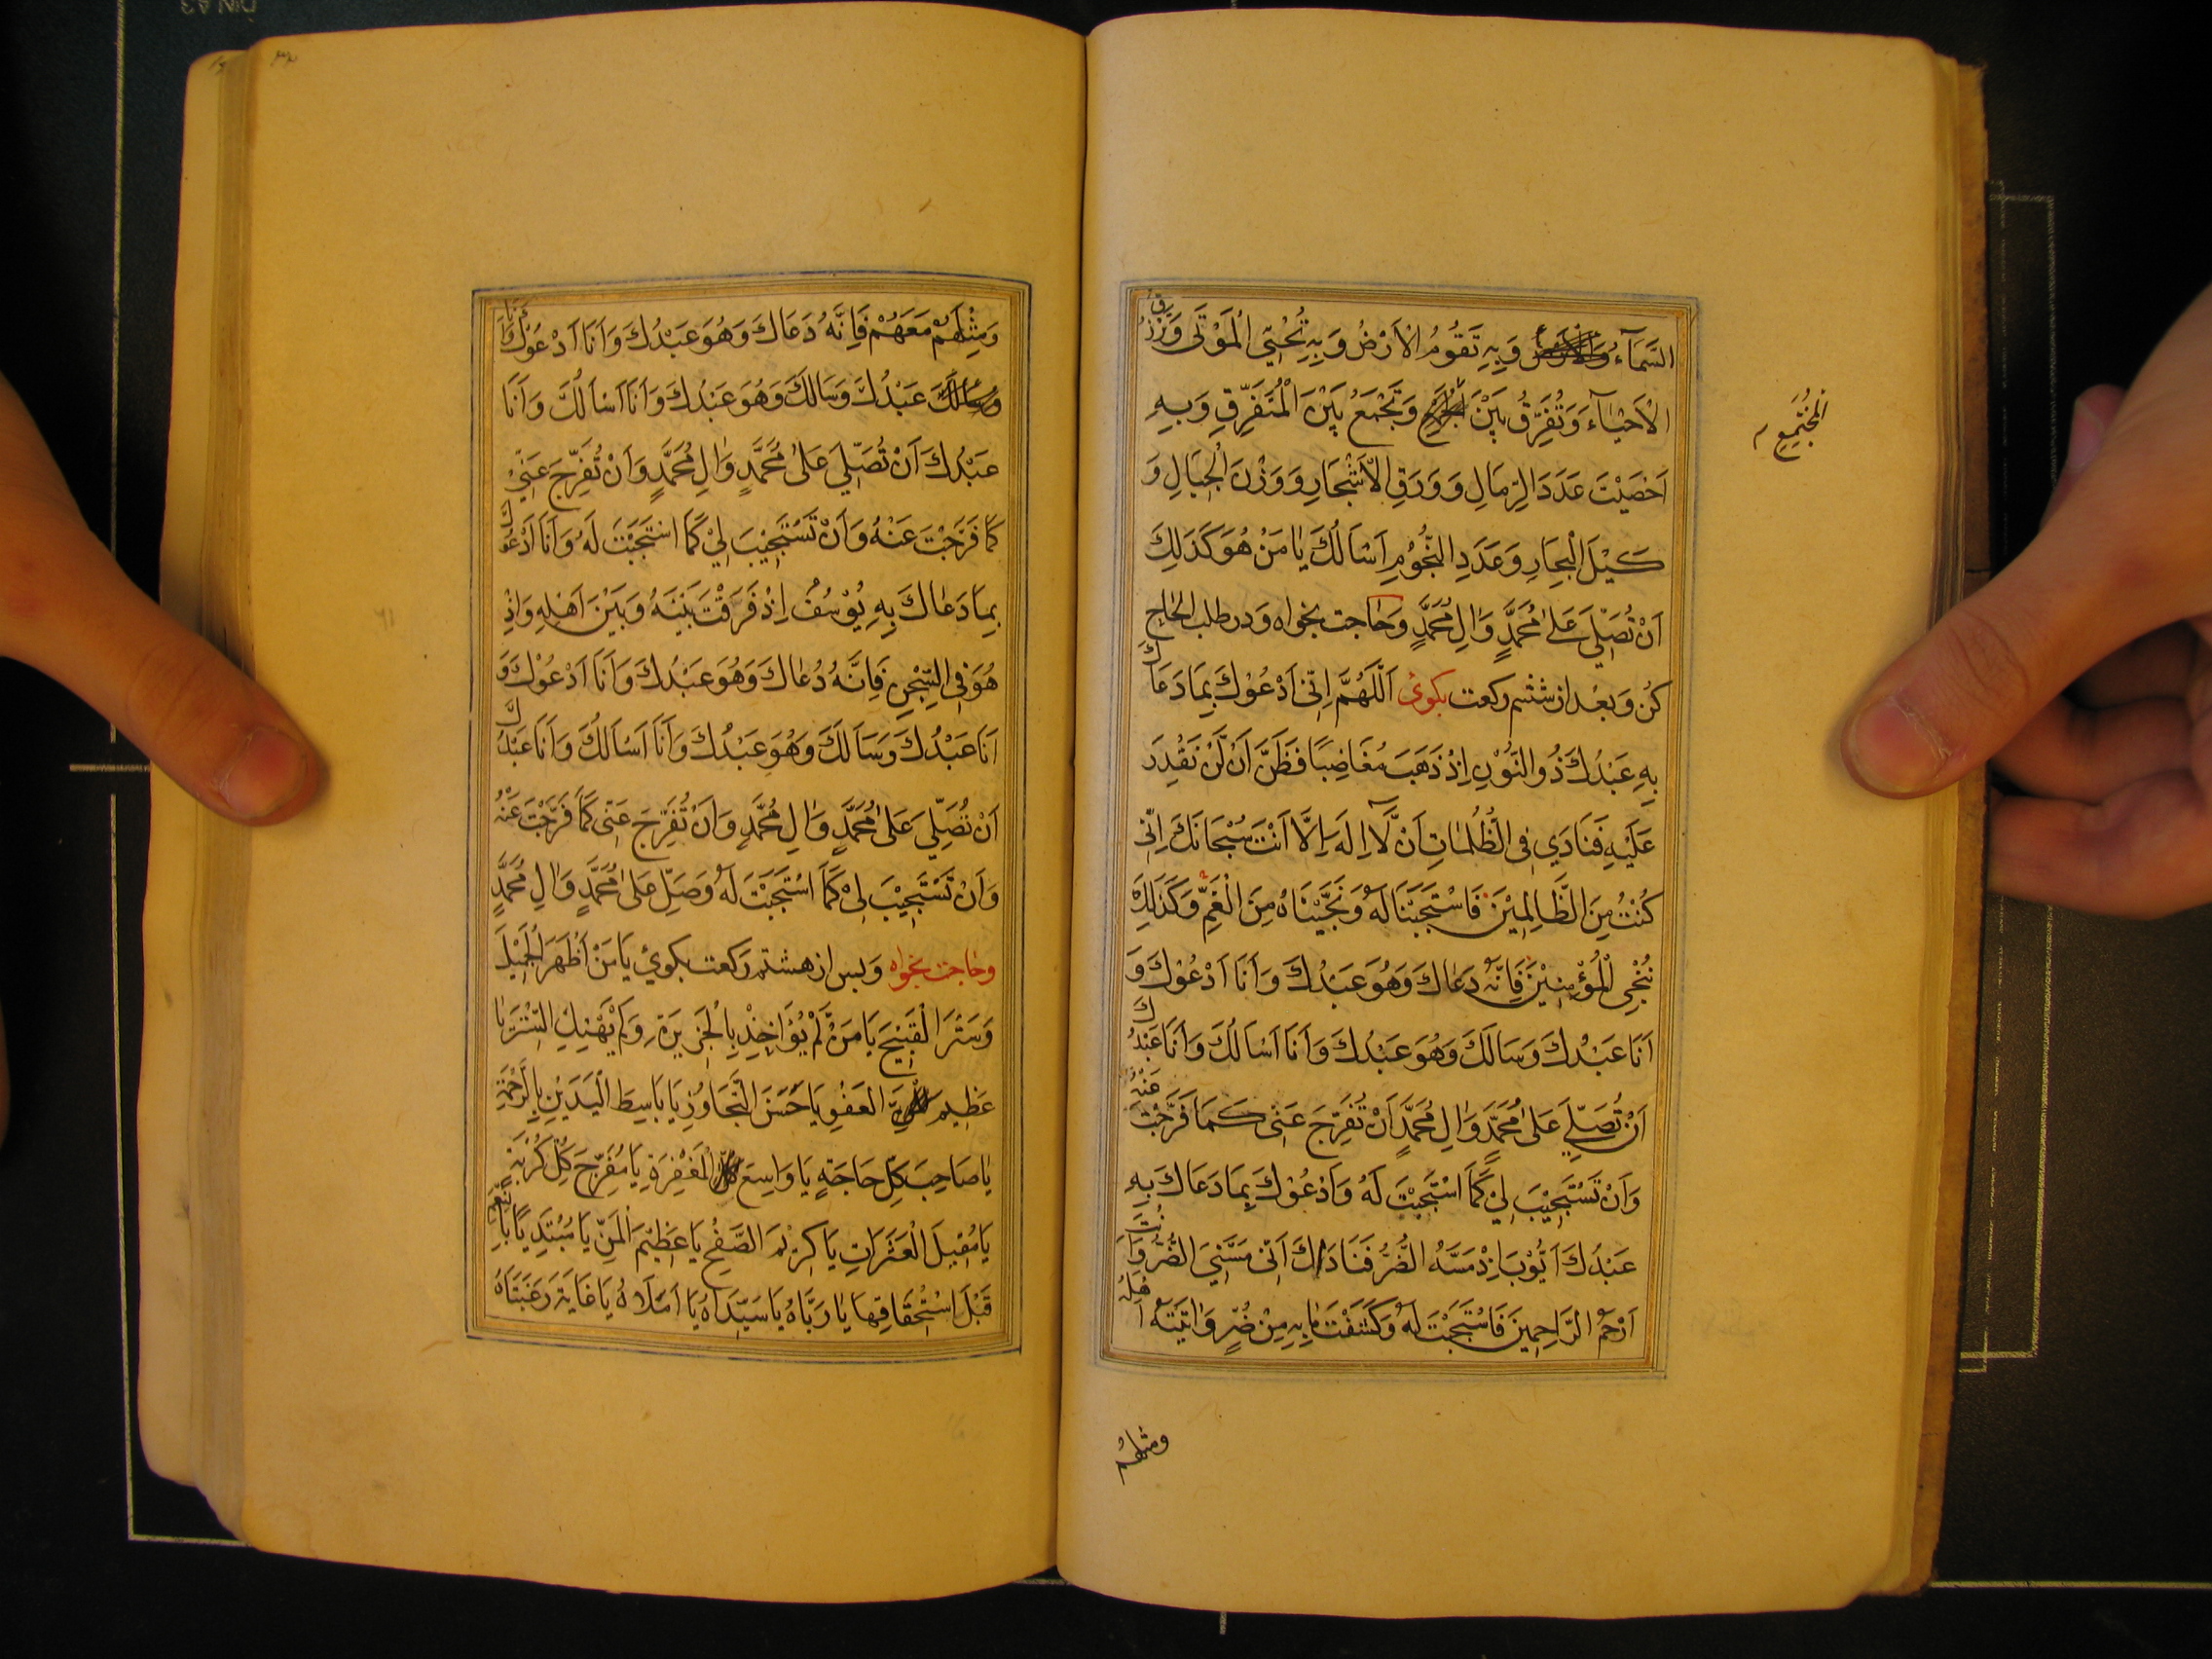 السَّمَآءُ وَبِهِ تَقُومُ الْاَرْضُ وَبِهِ تُحْيِي الْمَوْتٰى وَتَرْزُقُ
الْاَحْيَآءَ وَتُفَرِّقُ بَيْنَ الْمُجْتَمِعِ وَتَجْمَعُ بَيْنَ الْمُتَفَرِّقِ وَبِهِ
اَحْصَيْتَ عَدَدَ الرِّمَالِ وَوَرَقِ الْاَشْجَارِ وَوَزْنَ الْجِبَالِ وَ
كَيْلَ الْبِحَارِ وَعَدَدِ النُّجُوْمِ اَسْاَلُكَ يَا مَنْ هُوَ كَذٰلِكَ
اَنْ تُصَلِّيَ عَلٰى مُحَمَّدٍ وَاٰلِ مُحَمَّدٍ وَحاجت بخواه وَدر طلب الحاج
كُن وَبعْد از ششم ركعت بكوئ اَللّٰهُمَّ اِنِّى اَدْعُوْكَ بِمَا دَعَاكَ
بِهِ عَبْدُكَ ذُو النُّوْنِ اِذْ ذَهَبَ مُغَاضِبًا فَظَنَّ اَنْ لَنْ نَقْدِرَ
عَلَيْهِ فَنَادَي فِى الظُّلُمَاتِ اَنْ لَآ اِلٰهَ اِلَّا اَنْتَ سُبْحَانَكَ اِنِّى
كُنْتُ مِنَ الظَّالِمِيْنَ فَاسْتَجَبْنَا لَهُ وَنَجَّيْنَاهُ مِنَ الْغَمِّ وَكَذٰلِكَ
نُنْجِى الْمُؤْمِنِيْنَ فَاِنَّهُ دَعَاكَ وَهُوَ عَبْدُكَ وَاَنَا اَدْعُوْكَ وَ
اَنَا عَبْدُكَ وَسَاَلَكَ وَهُوَ عَبْدُكَ وَاَنَا اَسْاَلُكَ وَاَنَا عَبْدُكَ
اَنْ تُصَلِّيَ عَلٰى مُحَمَّدٍ وَاٰلِ مُحَمَّدٍ اَنْ تُفَرِّجَ عَنِّى كَمَا فَرَّجْتَ عَنْهُ
وَاَنْ تَسْتَجِيْبَ لِيْ كَمَا اسْتَجَبْتَ لَهُ وَاَدْعُوْكَ بِمَا دَعَاكَ بِهِ
عَبْدُكَ اَيُّوْبَ اِذْ مَسَّهُ الضُّرُّ فَنَادَاكَ اَنِّى مَسَّنِيَ الضُّرُّ وَاَنْتَ
اَرْحَمُ الرَّاحِمِينَ فَاسْتَجَبْتَ لَهُ وَكَشَفْتَ مَا بِهِ مِنْ ضُرٍّ وَاٰتَيْتَهُ اَهْلَهُ
ومثلهم
الْمُجْتَمِعِ
وَمِثْلَهُمْ مَعَهُمْ فَاِنَّهُ دَعَاكَ وَهُوَ عَبْدُكَ وَاَنَا اَدْعُوْكَ وَاَنَا
عَبْدُكَ وَسَاَلَكَ وَهُوَ عَبْدُكَ وَاَنَا اَسْاَلُكَ وَاَنَا
عَبْدُكَ اَنْ تُصَلِّيَ عَلٰى مُحَمَّدٍ وَاٰلِ مُحَمَّدٍ وَاَنْ تُفَرِّجَ عَنِّيْ
كَمَا فَرَّجْتَ عَنْهُ وَاَنْ تَسْتَجِيْبَ لِيْ كَمَا اسْتَجَبْتَ لَهُ وَاَنَا اَدْعُوكَ
بِمَا دَعَاكَ بِهِ يُوْسُفُ اِذْ فَرَّقْتَ بَيْنَهُ وَبَيْنَ اَهْلِهِ وَاِذْ
هُوَ فِى السِّجْنِ فَاِنَّهُ دُعَاكَ وَهُوَ عَبْدُكَ وَاَنَا اَدْعُوْكَ وَ
اَنَا عَبْدُكَ وَسَاَلَكَ وَهُوَ عَبْدُكَ وَاَنَا اَسْاَلُكَ وَاَنَا عَبْدُكَ
اَنْ تُصَلِّيَ عَلٰى مُحَمَّدٍ وَاٰلِ مُحَمَّدٍ وَاَنْ تُفَرِّجَ عَنّى كَمَا فَرَّجْتَ عَنْهُ
وَاَنْ تَسْتَجِيْبَ لِىْ كَمَا اسْتَجَبْتَ لَهُ وَصَلِّ عَلٰى مُحَمَّدٍ وَاٰلِ مُحَمَّدٍ
وحاجت بخواه وَپس از هشتم ركعت بكوئ يَا مَنْ اَظْهَرَ الْجَمِيْلَ
وَسَتَرَ الْقَبِيْحَ يَا مَنْ لَمْ يُؤَاخِذْ بِالْجَرِيْرَةِ وَلَمْ يَهْتِكِ السِّتْرَ يَا
عَظِيْمَ الْعَفْوِ يَا حَسَنَ التَّجَاوُزِ يَا بَاسِطَ الْيَدَيْنِ بِالرَّحْمَةِ
يَا صَاحِبَ كُلِّ حَاجَةٍ يَا وَاسِعَ الْمَغْفِرَةِ يَا مُفَرِّجَ كُلِّ كُرْبَةٍ
يَا مُقِيْلَ الْعَثَرَاتِ يَا كَرِيْمَ الصَّفْحِ يَا عَظِيْمَ الْمَنِّ يَا مُبْتَدِيًا بِالنِّعَمِ
قَبْلَ اسْتِحْقَاقِهَا يَا رَبَّاهُ يَا سَيِّدَاهُ يَا اَمَلَاهُ يَا غَايَةَ رَغْبَتَاهُ